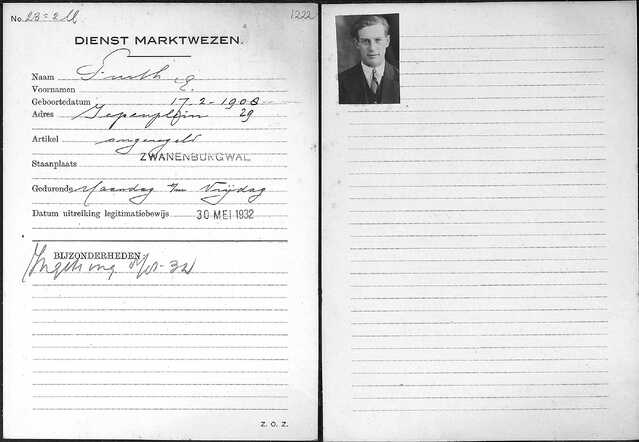 No. 23 = 2 M 1222
DIENST MARKTWEZEN.
Naam Smith
Voornamen E.
Geboortedatum 17-2-1908
Adres 29
Artikel ongeregeld
Staanplaats ZWANENBURGWAL
Gedurende Maandag t/m Vrijdag
Datum uitreiking legitimatiebewijs 30 MEI 1932
BIJZONDERHEDEN
32
Z. O. Z.